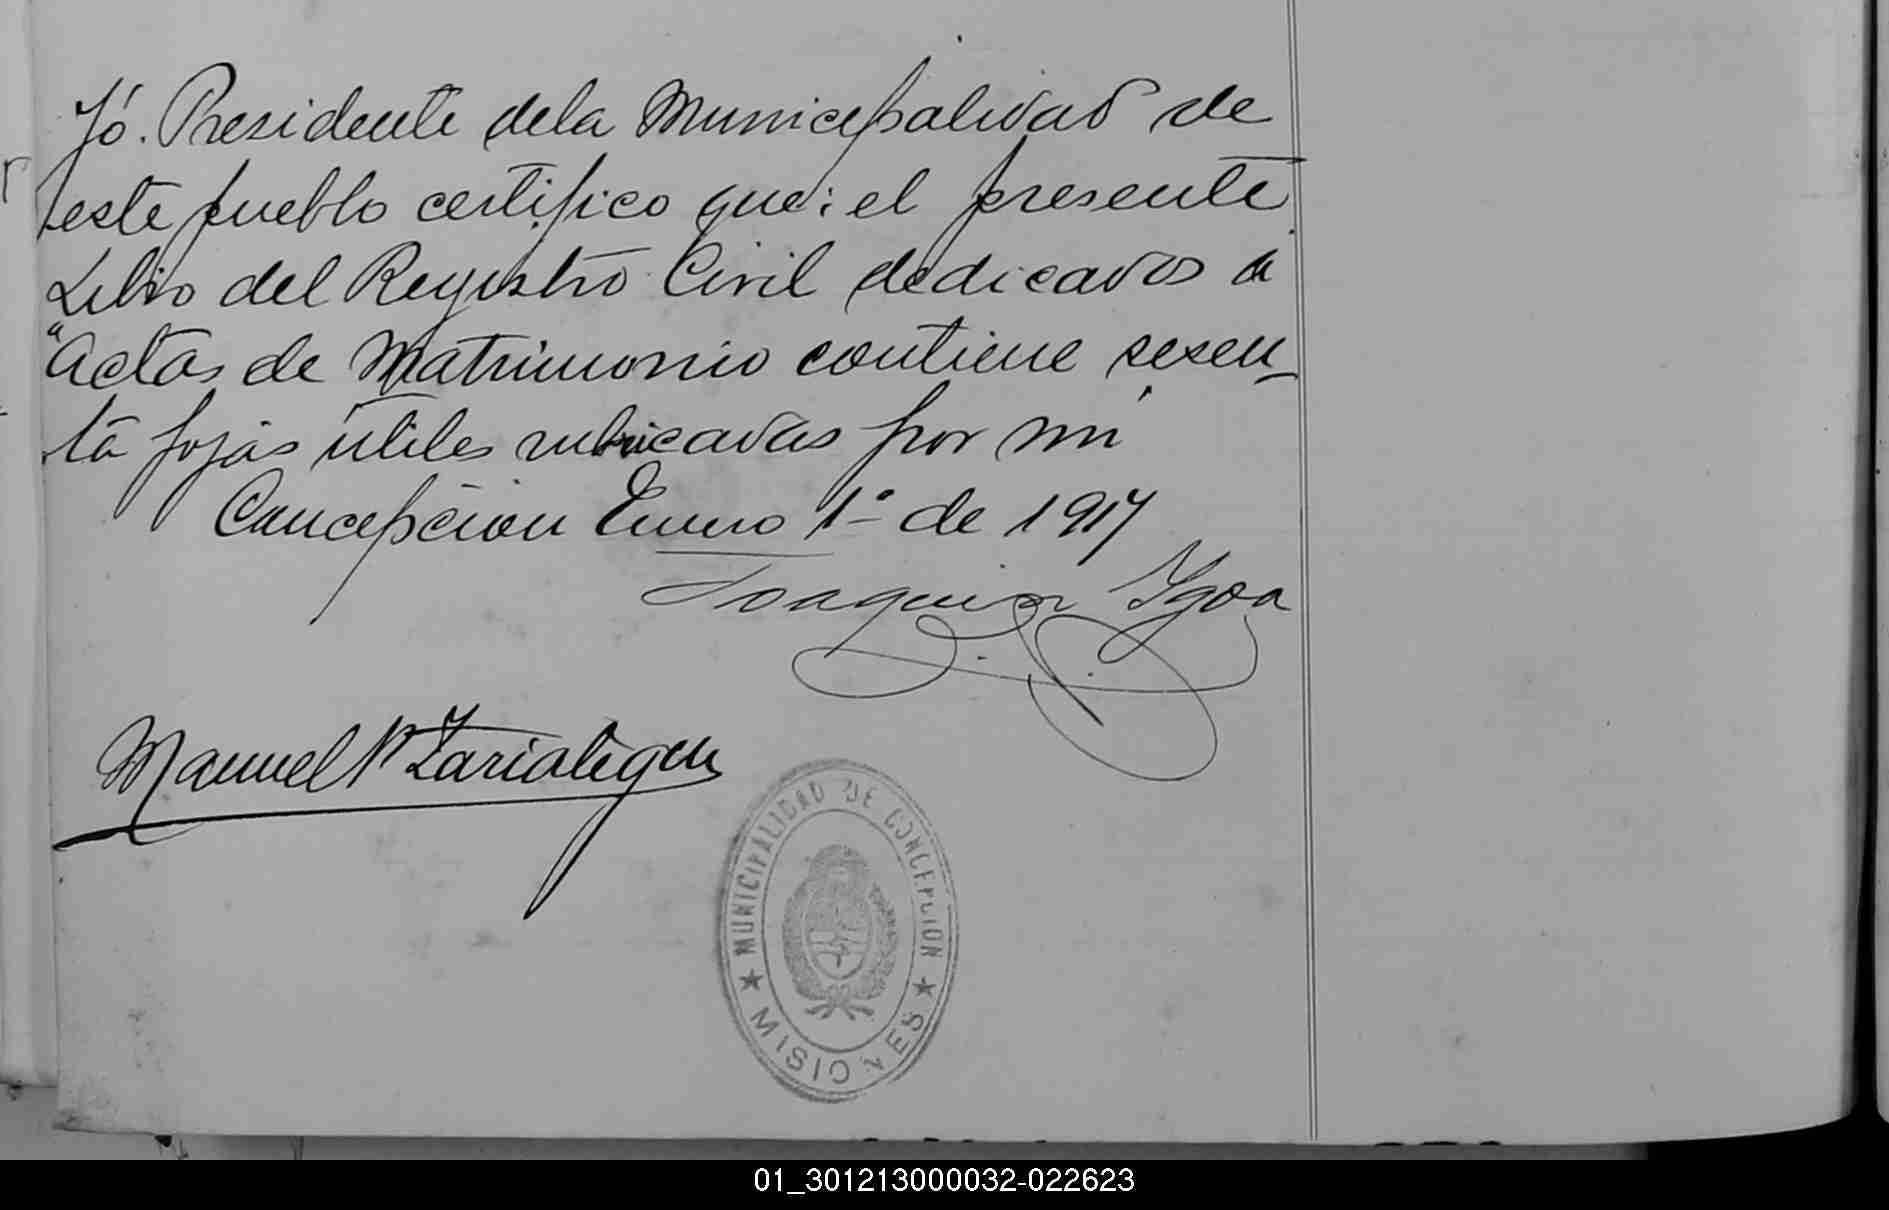 Yó. Presidente dela Municipalidad de
este pueblo certifico que: el presente
Libro del Registro Civil dedicados a
"Actas de Matrimonio contiene sesen_
ta fojas útiles rubricadas por mi
Concepción Enero 1º de 1917
Joaquin Ygoa
Manuel
MUNICIPALIDAD DE CONCEPCION
★ MISIONES ★
01_301213000032-022623